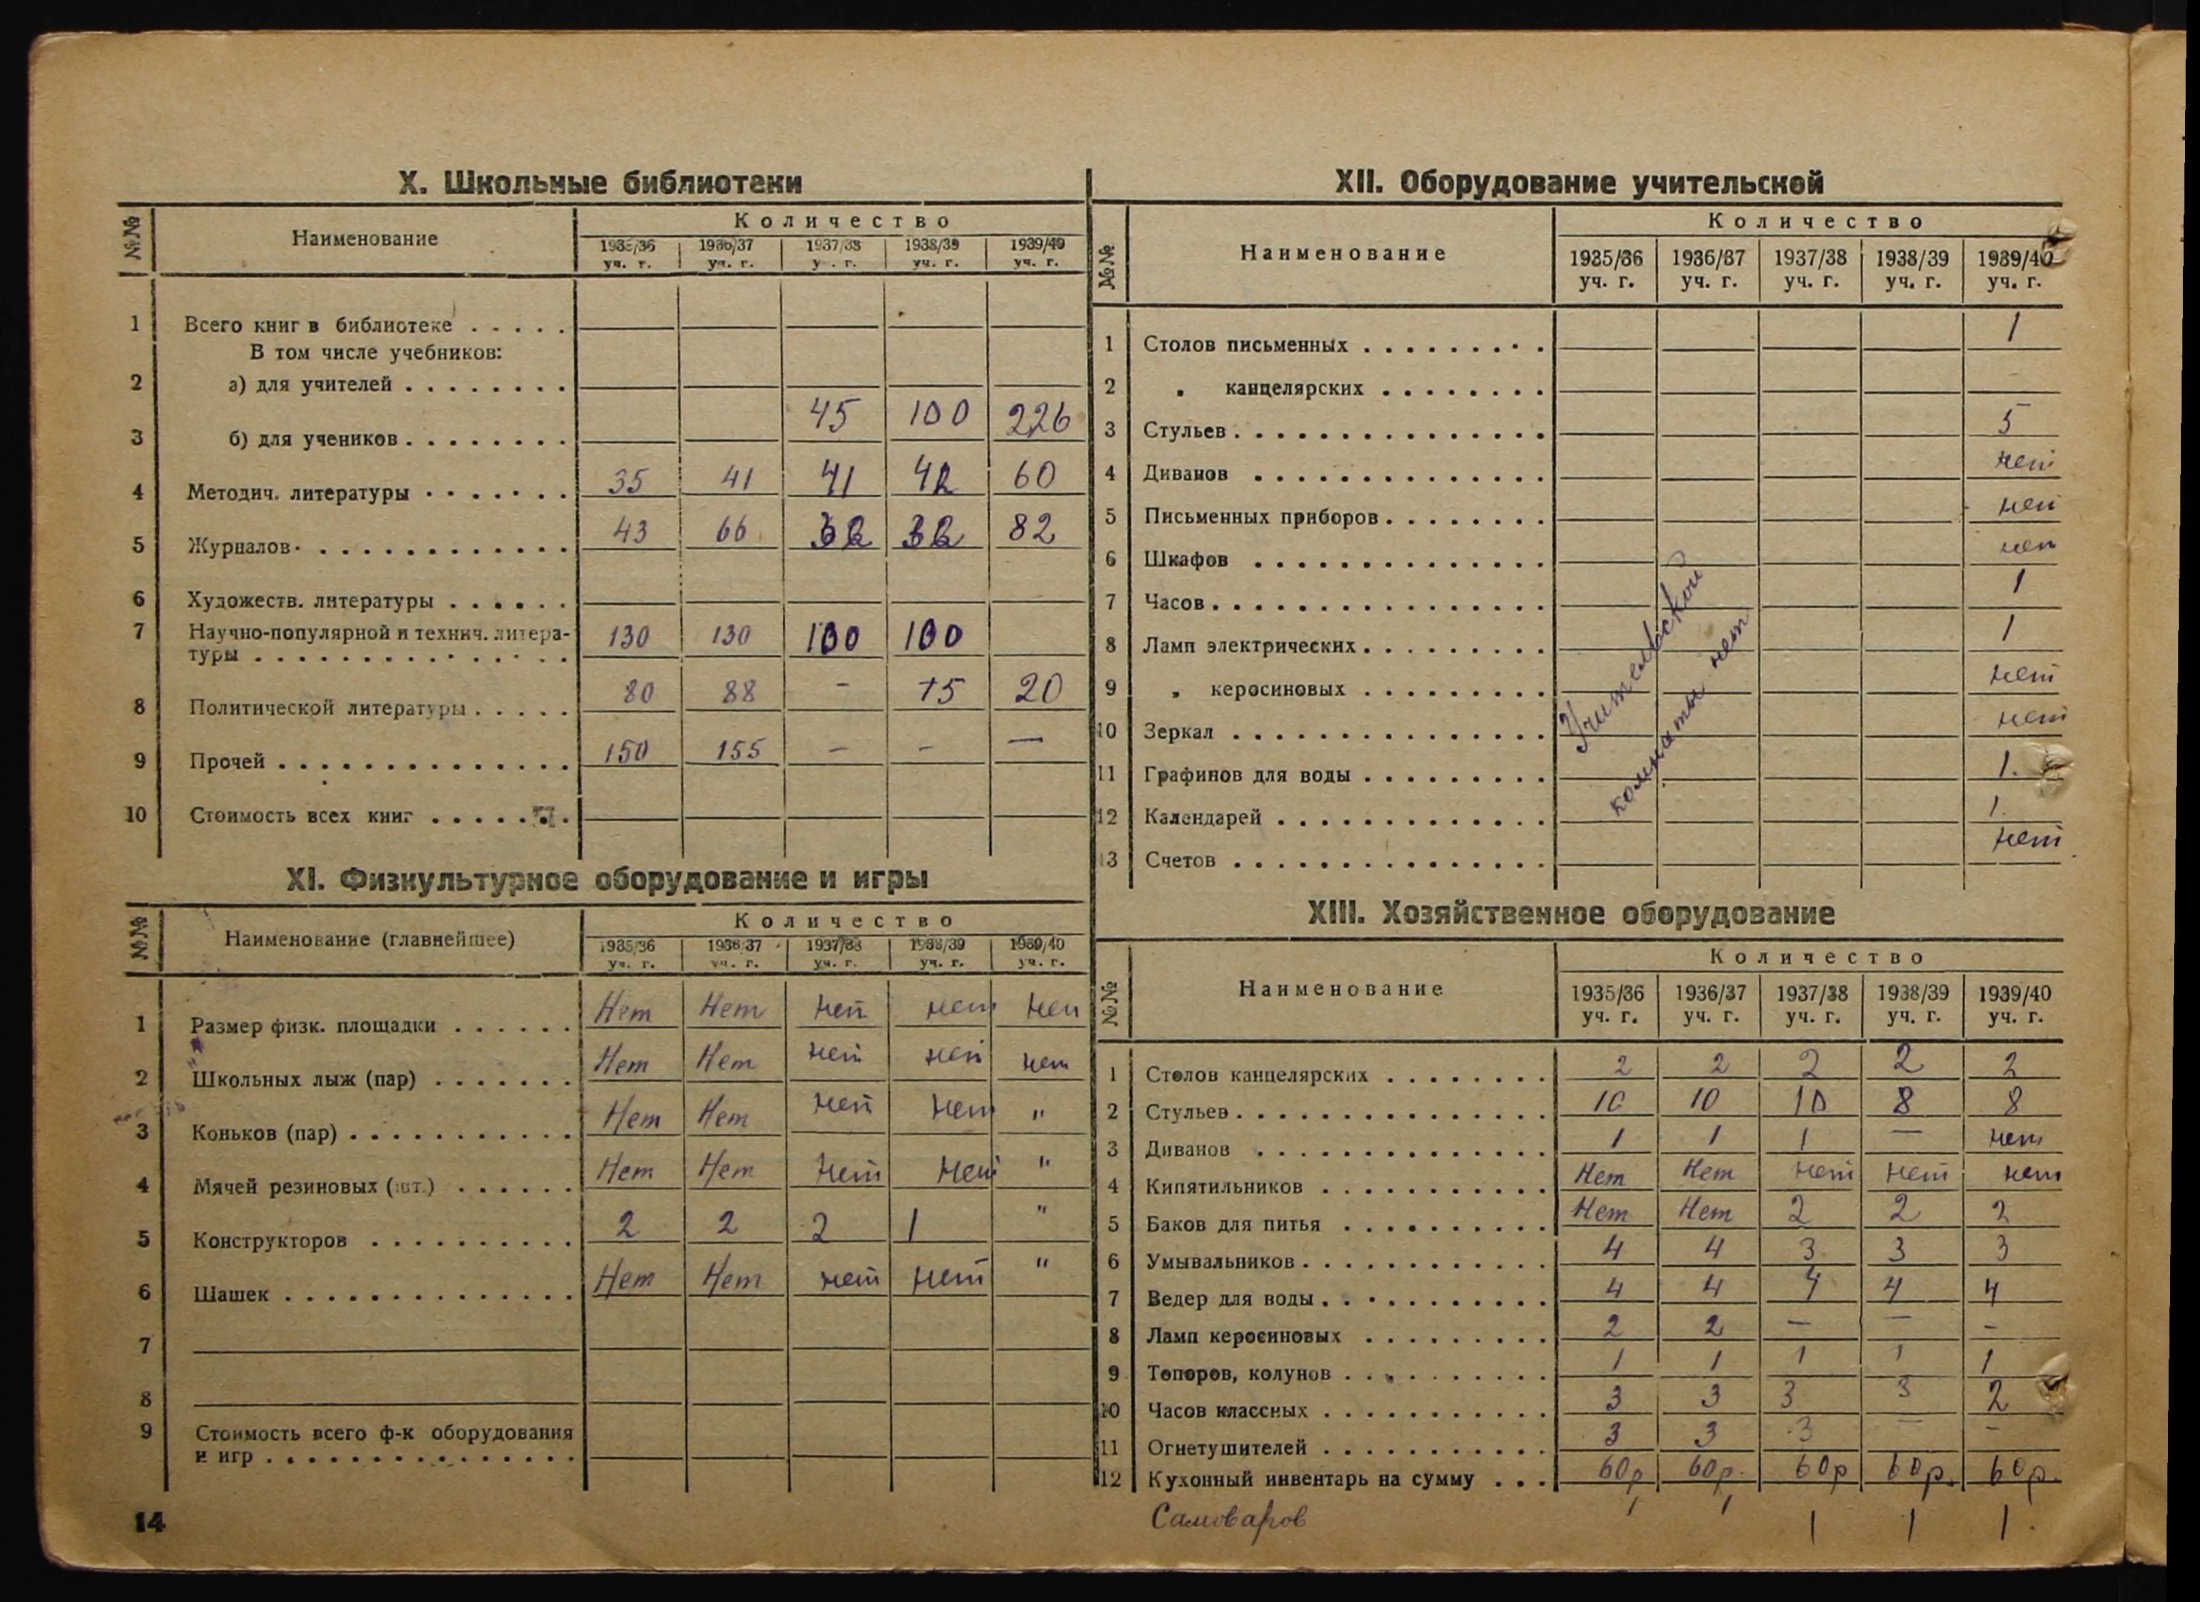 X. Школьные библиотеки
№№ Наименование Количество
1935/36 уч. г. 1936/37 уч. г. 1937/38 у . г. 1938/39 уч. г. 1939/40 уч. г.
1 Всего книг в библиотеке . . . . .
В том числе учебников:
2 а) для учителей . . . . . . . .
3 б) для учеников . . . . . . . . 45 100 226
4 Методич. литературы . . . . . . . 35 41 41 42 60
5 Журналов . . . . . . . . . . . . 43 66 82
6 Художеств. литературы . . . . . .
7 Научно-популярной и технич. литера-
туры . . . . . . . . . . . . 130 130 100 100
8 Политической литературы . . . . . 80 88 – 15 20
9 Прочей . . . . . . . . . . . . . . 150 155 – – —
10 Стоимость всех книг . . . . . . .
XI. Физкультурное оборудование и игры
№№ Наименование (главнейшее) Количество
1935/36 уч. г. 1936/37 уч. г. 1937/38 уч. г. 1938/39 уч. г. 1939/40 уч. г.
1 Размер физк. площадки . . . . . . Нет Нет нет нет нет
2 Школьных лыж (пар) . . . . . . . Нет Нет нет нет нет
3 Коньков (пар) . . . . . . . . . . . Нет Нет нет нет "
4 Мячей резиновых (шт.) . . . . . . Нет Нет нет нет "
5 Конструкторов . . . . . . . . . . 2 2 2 1 "
6 Шашек . . . . . . . . . . . . . . Нет Нет нет нет "
7
8
9 Стоимость всего ф-к оборудования
и игр . . . . . . . . . . . . . . .
14
XII. Оборудование учительской
№№ Наименование Количество
1935/36 уч. г. 1936/37 уч. г. 1937/38 уч. г. 1938/39 уч. г. 1939/40 уч. г.
1 Столов письменных . . . . . . . . . 1
2 „ канцелярских . . . . . . . . –
3 Стульев . . . . . . . . . . . . . . . 5
4 Диванов . . . . . . . . . . . . . . нет
5 Письменных приборов . . . . . . . . нет
6 Шкафов . . . . . . . . . . . . . . нет
7 Часов . . . . . . . . . . . . . . . . 1
8 Ламп электрических . . . . . . . . . 1
9 „ керосиновых . . . . . . . . . нет
10 Зеркал . . . . . . . . . . . . . . . нет
11 Графинов для воды . . . . . . . . . 1.
12 Календарей . . . . . . . . . . . . . 1.
13 Счетов . . . . . . . . . . . . . . . нет
Учительской
комнаты нет
XIII. Хозяйственное оборудование
№№ Наименование Количество
1935/36 уч. г. 1936/37 уч. г. 1937/38 уч. г. 1938/39 уч. г. 1939/40 уч. г.
1 Столов канцелярских . . . . . . . . 2 2 2 2 2
2 Стульев . . . . . . . . . . . . . . . 10 10 10 8 8
3 Диванов . . . . . . . . . . . . . . 1 1 1 — нет
4 Кипятильников . . . . . . . . . . . Нет Нет нет нет нет
5 Баков для питья . . . . . . . . . . Нет Нет 2 2 2
6 Умывальников . . . . . . . . . . . . . 4 4 3 3 3
7 Ведер для воды . . . . . . . . . . . 4 4 4 4 4
8 Ламп керосиновых . . . . . . . . . 2 2 — — –
9 Топоров, колунов . . . . . . . . . . 1 1 1 1 1
10 Часов классных . . . . . . . . . . . 3 3 3 3 2
11 Огнетушителей . . . . . . . . . . . 3 3 3 — –
12 Кухонный инвентарь на сумму . . . 60р 60р. 60р 60р. 60р.
Самоваров 1 1 1 1 1.